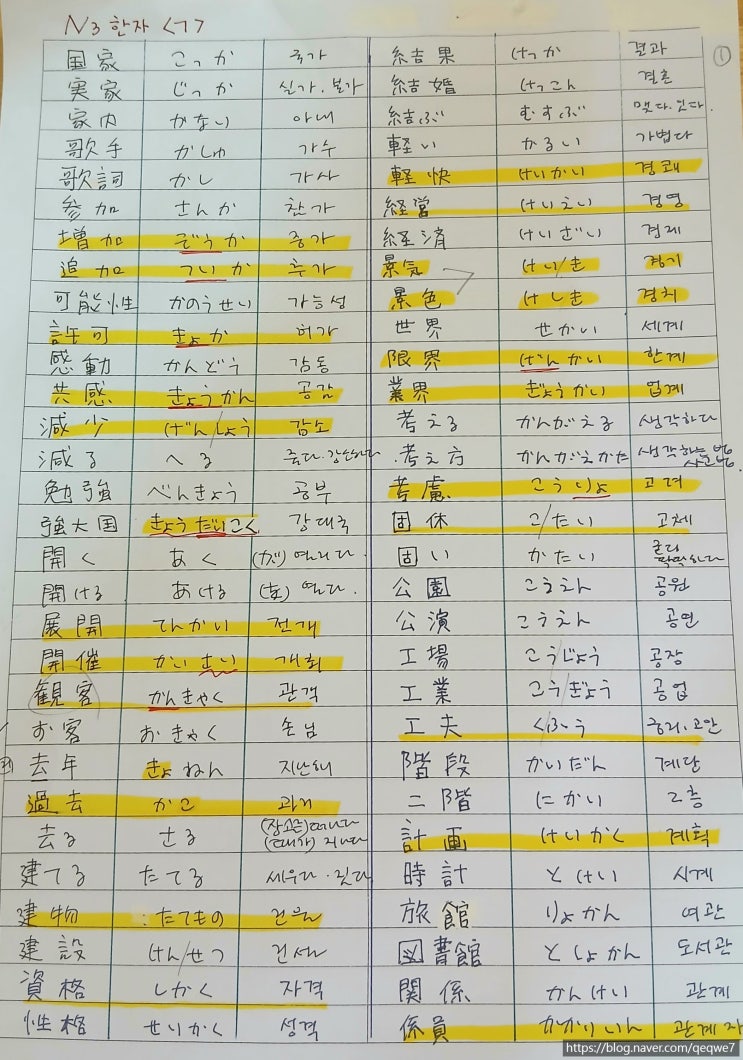 N3 한자 <ㄱ>
①
国家 こっか 국가
実家 じっか 실가. 본가
家内 かない 아내
歌手 かしゅ 가수
歌詞 かし 가사
参加 さんか 참가
増加 ぞうか 증가
追加 ついか 추가
可能性 かのうせい 가능성
許可 きょか 허가
感動 かんどう 감동
共感 きょうかん 공감
減少 げんしょう 감소
減る へる 줄다. 감소하다
勉強 べんきょう 공부
強大国 きょうだいこく 강대국
開く あく (が) 열리다.
開ける あける (を) 연다.
展開 てんかい 전개
開催 かいさい 개최
観客 かんきゃく 관객
お客 おきゃく 손님
去年 きょねん 지난해
過去 かこ 과거
去る さる (장소를) 떠나다 (때가) 지나다
建てる たてる 세우다. 짓다
建物 たてもの 건물
建設 けんせつ 건설
資格 しかく 자격
性格 せいかく 성격
結果 けっか 결과
結婚 けっこん 결혼
結ぶ むすぶ 맺다. 잇다.
軽い かるい 가볍다
軽快 けいかい 경쾌
経営 けいえい 경영
経済 けいざい 경제
景気 けいき 경기
景色 けしき 경치
世界 せかい 세계
限界 げんかい 한계
業界 ぎょうかい 업계
考える かんがえる 생각하다
考え方 かんがえかた 생각하는 법
考慮 こうりょ 고려
固休 こたい 고체
固い かたい 굳다 딱딱하다
公園 こうえん 공원
公演 こうえん 공연
工場 こうじょう 공장
工業 こうぎょう 공업
工夫 くふう 궁리. 고안
階段 かいだん 계단
二階 にかい 2층
計画 けいかく 계획
時計 とけい 시계
旅館 りょかん 여관
図書館 としょかん 도서관
関係 かんけい 관계
係員 かかりいん 관계자
https://blog.naver.com/qeqwe7